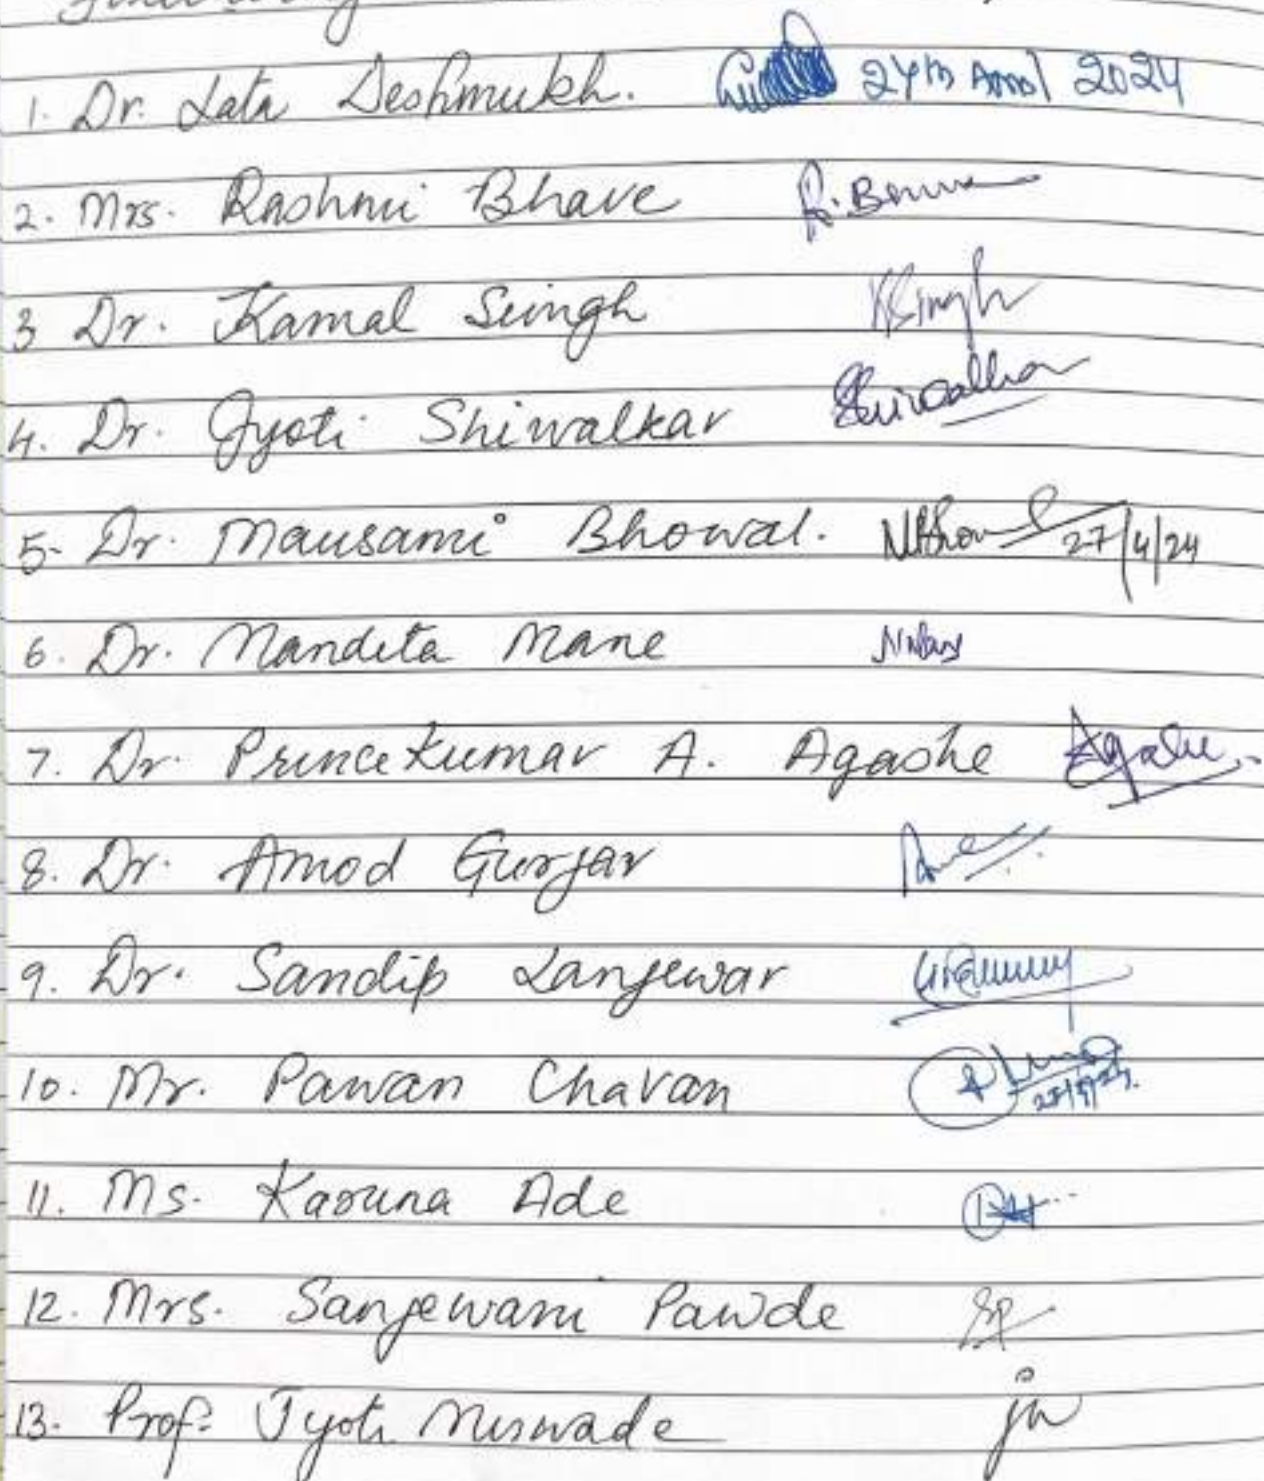 1. Dr. Lata Deshmukh. 24th April 2024
2. Mrs. Rashmi Bhave R. B
3 Dr. Kamal Singh KSingh
4. Dr. Jyoti Shiwalkar Shiwalkar
5- Dr. Mausami Bhowal. 27/4/24
6. Dr. Nandita Mane
7. Dr. Princekumar A. Agashe
8. Dr. Amod Gurjar
9. Dr. Sandip Lanjewar
10. Mr. Pawan Chavan
11. Ms. Karuna Ade
12. Mrs. Sanjewani Pawde SP
13. Prof. Jyoti Niswade jn